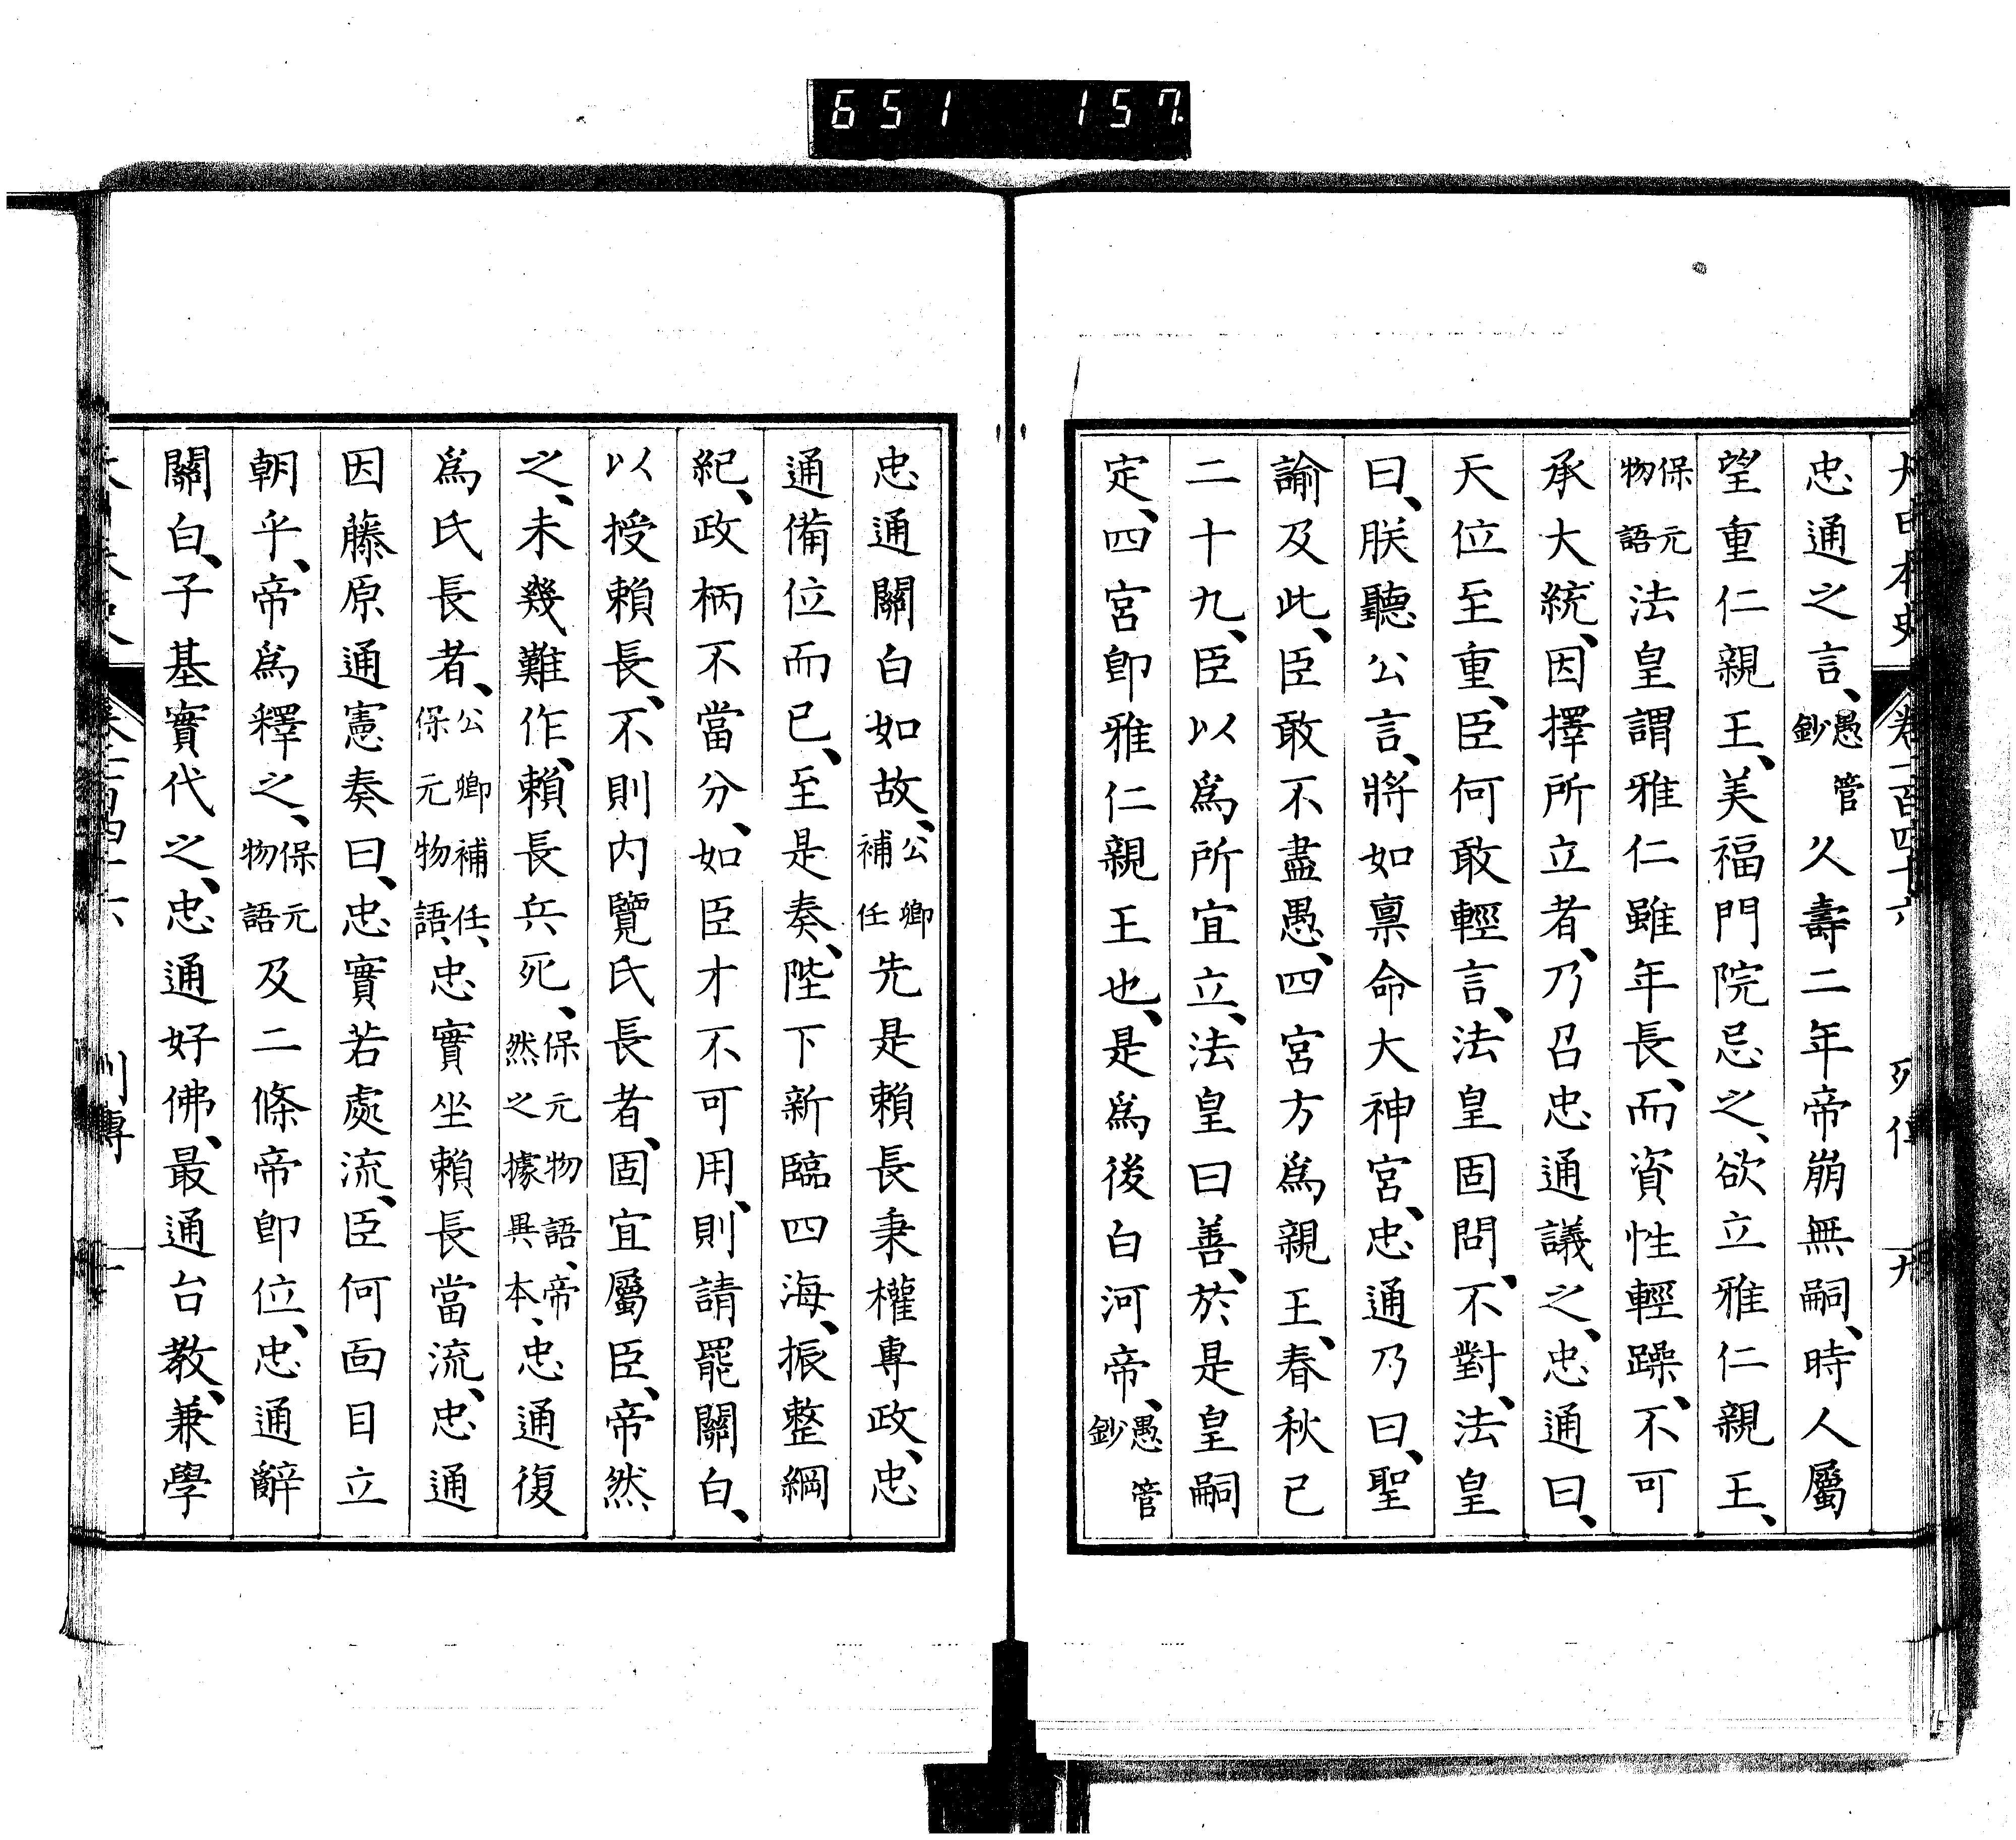 651 157.
大日本史 卷一百四十六 列傳 九
忠通之言、愚管鈔久壽二年帝崩無嗣、時人屬
望重仁親王、美福門院忌之、欲立雅仁親王、
保元物語法皇謂雅仁雖年長、而資性輕躁、不可
承大統、因擇所立者、乃召忠通議之、忠通曰、
天位至重、臣何敢輕言、法皇固問、不對、法皇
曰、朕聽公言、將如禀命大神宮、忠通乃曰、聖
諭及此、臣敢不盡愚、四宮方爲親王、春秋已
二十九、臣以爲所宜立、法皇曰善、於是皇嗣
定、四宮卽雅仁親王也、是爲後白河帝、愚管鈔
忠通關白如故、公卿補任先是賴長秉權專政、忠
通備位而已、至是奏、陛下新臨四海、振整綱
紀、政柄不當分、如臣才不可用、則請罷關白、
以授賴長、不則内覽氏長者、固宜屬臣、帝然
之、未幾難作、賴長兵死、保元物語、帝然之據異本、忠通復
爲氏長者、公卿補任、保元物語、忠實坐賴長當流、忠通
因藤原通憲奏曰、忠實若處流、臣何面目立
朝乎、帝爲釋之、保元物語及二條帝卽位、忠通辭
關白、子基實代之、忠通好佛、最通台教、兼學